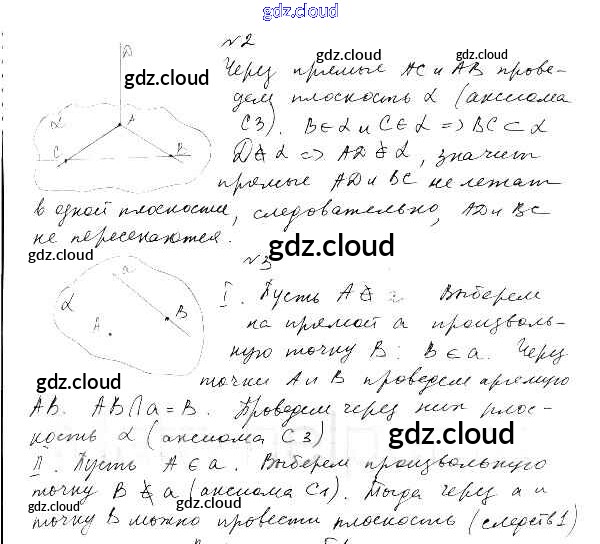 gdz.cloud
№2
Через прямые AC и AB прове-
дем плоскость α (аксиома
C3). B∈α и C∈α => BC⊂α
D∉α => AD⊄α, значит
прямые AD и BC не лежат
в одной плоскости, следовательно, AD и BC
не пересекаются.
D
α
A
C
B
gdz.cloud
gdz.cloud
gdz.cloud
gdz.cloud
gdz.cloud
gdz.cloud
№3
I. Пусть A∉a. Выберем
на прямой a произволь-
ную точку B: B∈a. Через
точки A и B проведем прямую
AB. AB∩a=B. Проведем через них плос-
кость α (аксиома C3)
II. Пусть A∈a. Выберем произвольную
точку B∉a (аксиома C1). Тогда через a и
точку B можно провести плоскость (следств 1)
a
α
B
A
gdz.cloud
gdz.cloud
gdz.cloud
gdz.cloud
gdz.cloud
gdz.cloud